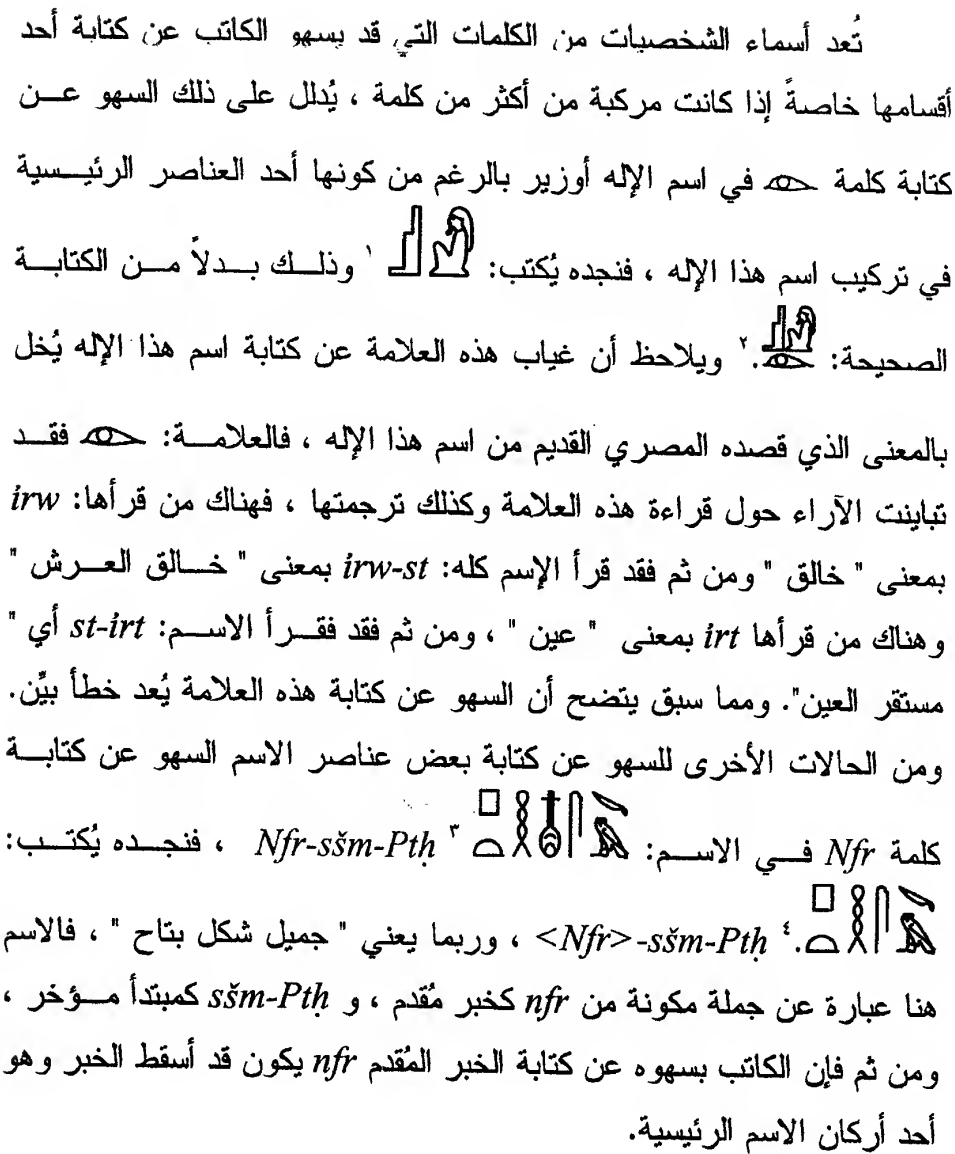 تُعد أسماء الشخصيات من الكلمات التي قد يسهو الكاتب عن كتابة أحد
أقسامها خاصةً إذا كانت مركبة من أكثر من كلمة ، يُدلل على ذلك السهو عن
كتابة كلمة 𓁹 في اسم الإله أوزير بالرغم من كونها أحد العناصر الرئيسية
في تركيب اسم هذا الإله ، فنجده يُكتب: ١ وذلك بدلاً من الكتابة
الصحيحة: .٢ ويلاحظ أن غياب هذه العلامة عن كتابة اسم هذا الإله يُخل
بالمعنى الذي قصده المصري القديم من اسم هذا الإله ، فالعلامة: 𓁹 فقد
تباينت الآراء حول قراءة هذه العلامة وكذلك ترجمتها ، فهناك من قرأها: irw
بمعنى " خالق " ومن ثم فقد قرأ الإسم كله: irw-st بمعنى " خالق العرش "
وهناك من قرأها irt بمعنى " عين " ، ومن ثم فقد فقرأ الاسم: st-irt أي "
مستقر العين". ومما سبق يتضح أن السهو عن كتابة هذه العلامة يُعد خطأ بيِّن.
ومن الحالات الأخرى للسهو عن كتابة بعض عناصر الاسم السهو عن كتابة
كلمة Nfr في الاسم: ٣ Nfr-sšm-Ptḥ ، فنجده يُكتب:
.٤ <Nfr>-sšm-Ptḥ ، وربما يعني " جميل شكل بتاح " ، فالاسم
هنا عبارة عن جملة مكونة من nfr كخبر مُقدم ، و sšm-Ptḥ كمبتدأ مؤخر ،
ومن ثم فإن الكاتب بسهوه عن كتابة الخبر المُقدم nfr يكون قد أسقط الخبر وهو
أحد أركان الاسم الرئيسية.